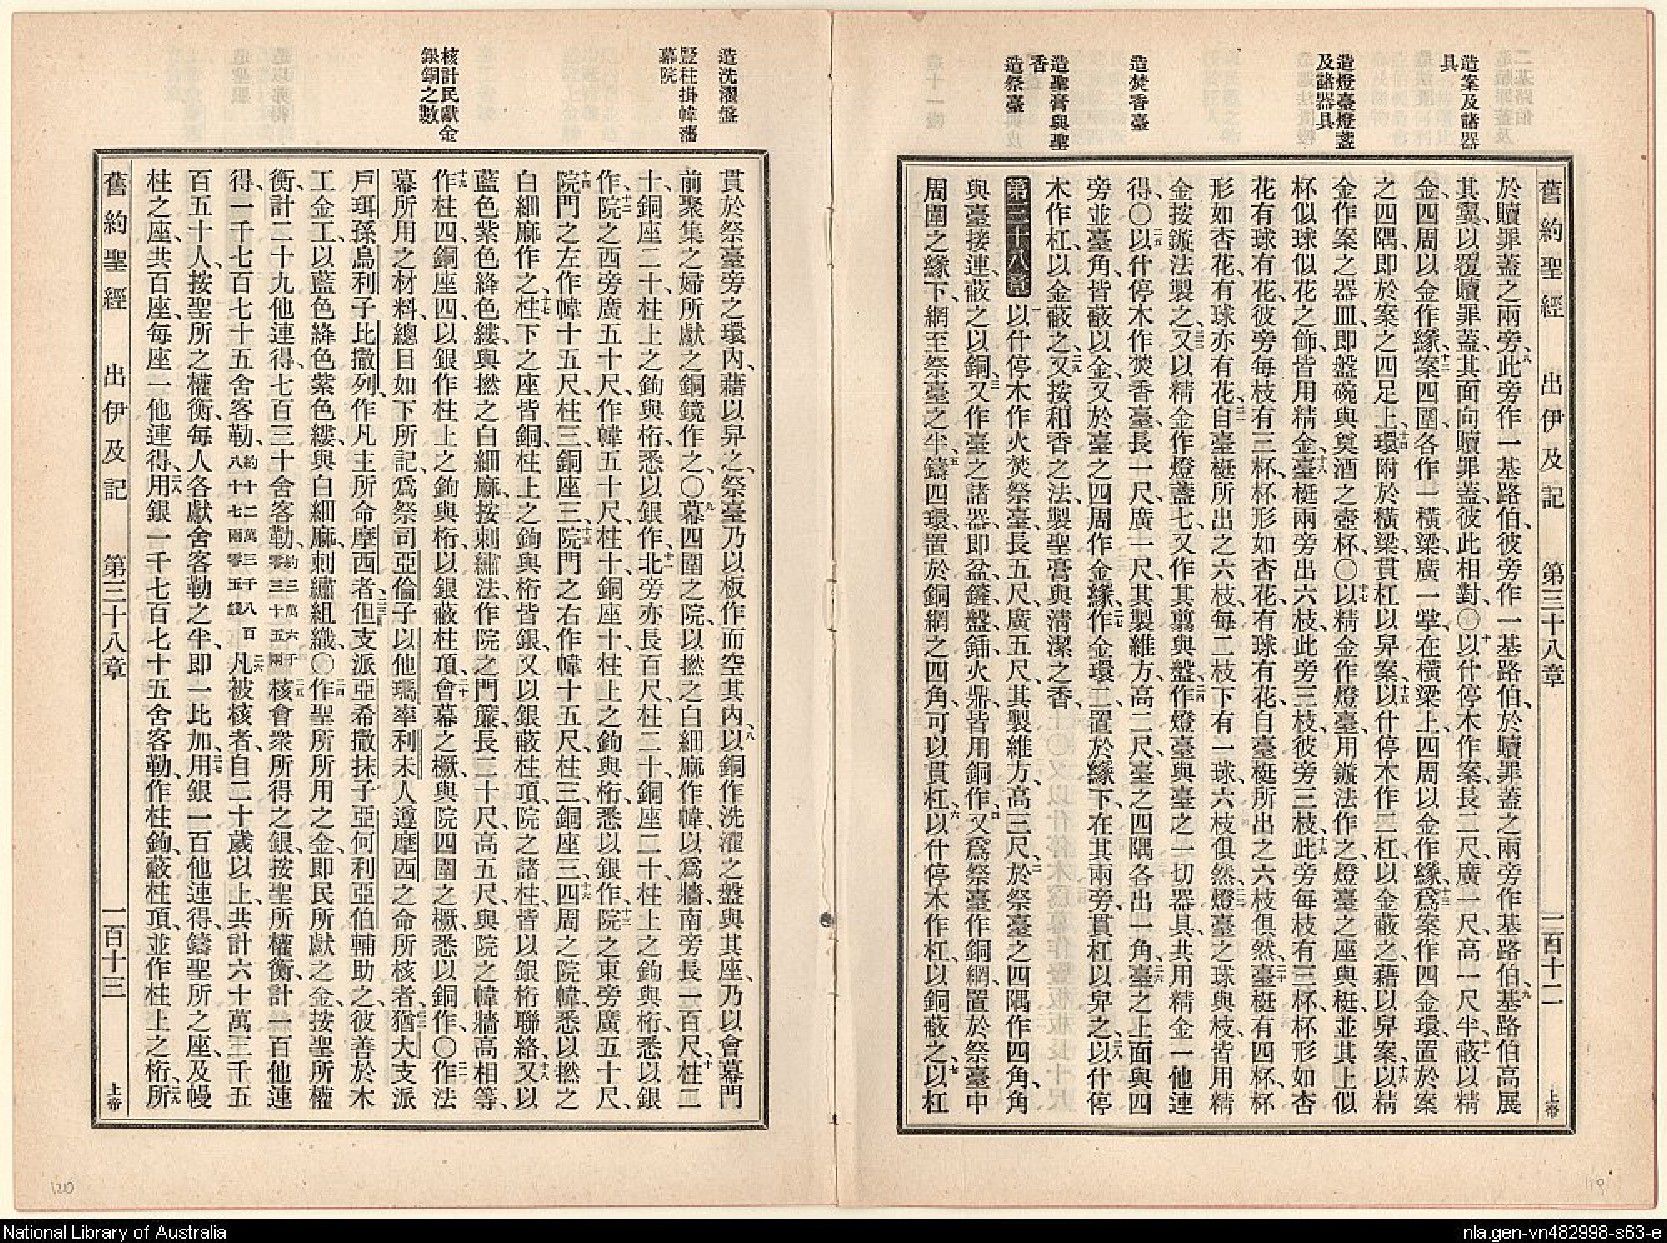 造案及諸器
具
造燈臺燈盞
及諸器具
造焚香臺
造聖膏與聖
香
造祭臺
舊約聖經 出伊及記 第三十八章 二百十二 上帝
於贖罪蓋之兩旁、八此旁作一基路伯、彼旁作一基路伯、於贖罪蓋之兩旁作基路伯、九基路伯高展
其翼、以覆贖罪蓋、其面向贖罪蓋、彼此相對、〇十以什停木作案、長二尺、廣一尺、高一尺半、十一蔽以精
金、四周以金作緣、十二案四圍各作一橫梁、廣一掌、在橫梁上四周以金作緣、十三爲案作四金環、置於案
之四隅、即於案之四足上、十四環附於橫梁、貫杠以舁案、十五以什停木作二杠、以金蔽之、藉以舁案、十六以精
金作案之器皿、即盤碗與奠酒之壺杯、〇十七以精金作燈臺、用鏇法作之、燈臺之座與梃、並其上似
杯似球似花之飾、皆用精金、十八臺梃兩旁出六枝、此旁三枝、彼旁三枝、十九此旁每枝有三杯、杯形如杏
花、有球有花、彼旁每枝有三杯、杯形如杏花、有球有花、自臺梃所出之六枝俱然、二十臺梃有四杯、杯
形如杏花、有球亦有花、二一自臺梃所出之六枝、每二枝下有一球、六枝俱然、二二燈臺之球與枝、皆用精
金、按鏇法製之、二三又以精金作燈盞七、又作其翦與盤、二四作燈臺與臺之一切器具、共用精金一他連
得、〇二五以什停木作焚香臺、長一尺、廣一尺、其製維方、高二尺、臺之四隅各出一角、二六臺之上面與四
旁並臺角、皆蔽以金、又於臺之四周作金緣、二七作金環二、置於緣下、在其兩旁、貫杠以舁之、二八以什停
木作杠、以金蔽之、二九又按和香之法、製聖膏與清潔之香、
第三十八章 一以什停木作火焚祭臺、長五尺、廣五尺、其製維方、高三尺、二於祭臺之四隅作四角、角
與臺接連、蔽之以銅、三又作臺之諸器、即盆鏟盤鍤火鼎、皆用銅作、四又爲祭臺作銅網、置於祭臺中
周圍之緣下、網至祭臺之半、五鑄四環、置於銅網之四角、可以貫杠、六以什停木作杠、以銅蔽之、七以杠
造洗濯盤
豎柱掛幃藩
幕院
核計民獻金
銀銅之數
貫於祭臺旁之環內、藉以舁之、祭臺乃以板作、而空其內、八以銅作洗濯之盤與其座、乃以會幕門
前聚集之婦所獻之銅鏡作之、〇九幕四圍之院、以撚之白細麻作幃、以爲牆、南旁長一百尺、十柱二
十、銅座二十、柱上之鉤與桁、悉以銀作、十一北旁亦長百尺、柱二十、銅座二十、柱上之鉤與桁、悉以銀
作、十二院之西旁、廣五十尺、作幃五十尺、柱十、銅座十、柱上之鉤與桁、悉以銀作、十三院之東旁、廣五十尺、
十四院門之左、作幃十五尺、柱三、銅座三、十五院門之右、作幃十五尺、柱三、銅座三、十六四周之院幃、悉以撚之
白細麻作之、十七柱下之座皆銅、柱上之鉤與桁皆銀、又以銀蔽柱頂、院之諸柱、皆以銀桁聯絡、十八又以
藍色紫色絳色縷與撚之白細麻、按刺繡法作院之門簾、長二十尺、高五尺、與院之幃牆高相等、
十九作柱四、銅座四、以銀作柱上之鉤與桁、以銀蔽柱頂、二十會幕之橛與院四圍之橛、悉以銅作、〇二一作法
幕所用之材料、總目如下所記、爲祭司亞倫子以他瑪率利未人遵摩西之命所核者、二二猶大支派
戶珥孫烏利子比撒列、作凡主所命摩西者、二三但支派亞希撒抹子亞何利亞伯輔助之、彼善於木
工金工、以藍色絳色紫色縷與白細麻刺繡組織、〇二四作聖所所用之金、即民所獻之金、按聖所權
衡計、二十九他連得、七百三十舍客勒、約三萬六千零三十五兩二五核會衆所得之銀、按聖所權衡計、一百他連
得、一千七百七十五舍客勒、約十二萬三千八百八十七兩零五錢二六凡被核者、自二十歲以上、共計六十萬三千五
百五十人、按聖所之權衡、每人各獻舍客勒之半、即一比加、二七用銀一百他連得、鑄聖所之座、及幔
柱之座、共百座、每座一他連得、二八用銀一千七百七十五舍客勒、作柱鉤、蔽柱頂、並作柱上之桁、二九所
舊約聖經 出伊及記 第三十八章 一百十三 上帝
120
119
National Library of Australia
nla.gen-vn482998-s63-e